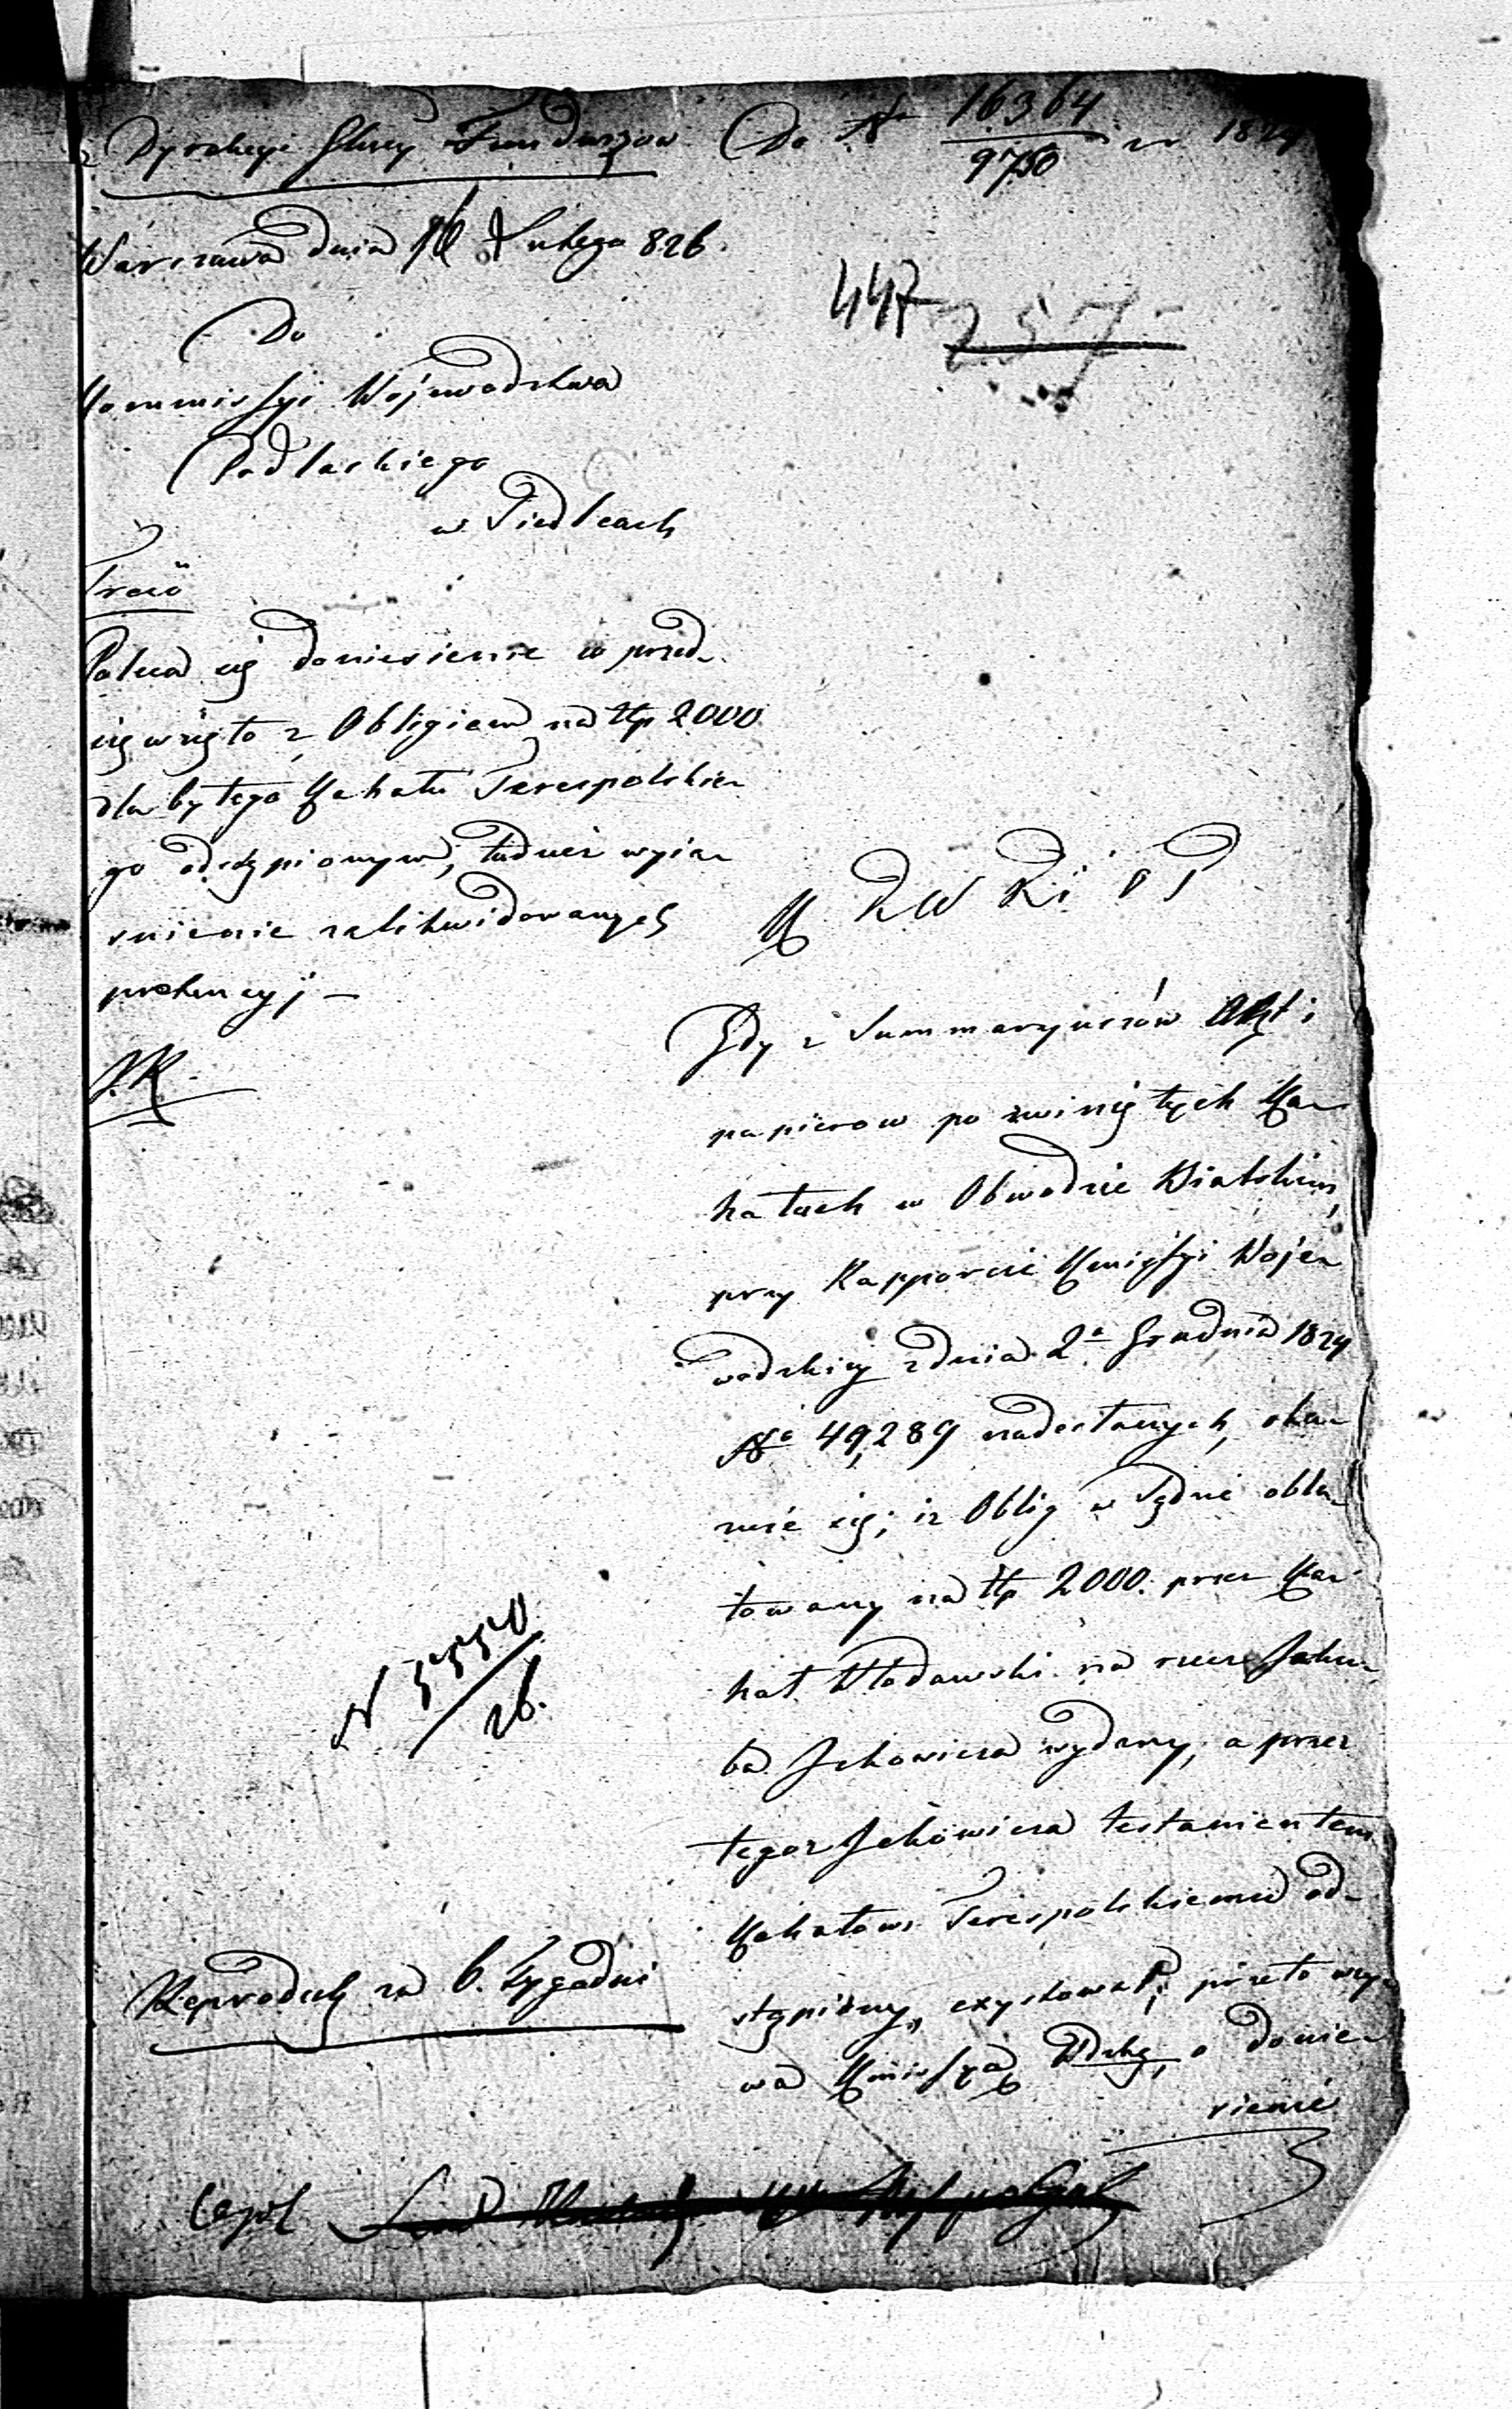 Dyrekcyi Głłney Funduszow Do No 16364/9750 w 1824
Warszawa dnia 16 Lutego 826.
447 257
Do
Kommissyi Wojewodztwa
Podlaskiego
w Siedlcach
Treść
Poleca się doniesienie co przed-
się wzięto z Obligiem na złp 2000
dla byłego Kahału Terespolskie-
go odstąpionym, tudzież wyja-
śnienie zalikwidowanych
pretensyj —
K R W R i S P
Gdy z Summaryuszów Akt i
papierow po zwiniętych Ka-
hałach w Obwodzie Bialskim,
przy Rapporcie Kmissyi Woje-
wodzkiej z dnia 2o Grudnia 1824
No 49,289 nadesłanych, oka-
zuie się, iż Oblig w Sądzie obla-
towany na złp 2000. przez Ka-
hał Włodawski na rzecz Jaku-
ba Jckowicza wydany, a przez
tegoż Jckowicza testamentem
Kahałowi Terespolskiemu od-
stąpiony, exystował; przeto wzy-
wa Kmissyą Wdzką, o donie-
sienie
N 5550/26.
Reprodukt za 6. tygodni